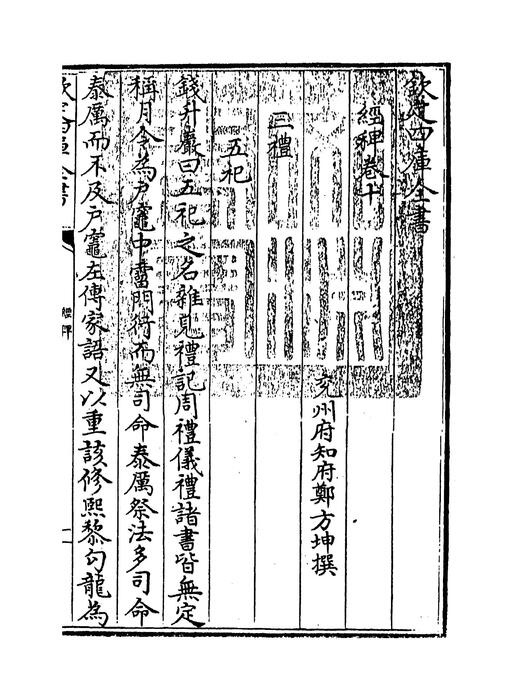 欽定四庫全書
經稗卷十
兖州府知府鄭方坤撰
三禮
五祀
錢升巖曰五祀之名雜見禮記周禮儀禮諸書皆無定
稱月令為戶竈中霤門行而無司命泰厲祭法多司命
泰厲而不及戶竈左傳家語又以重該修熙黎勾龍為
欽定四庫全書
經稗
一